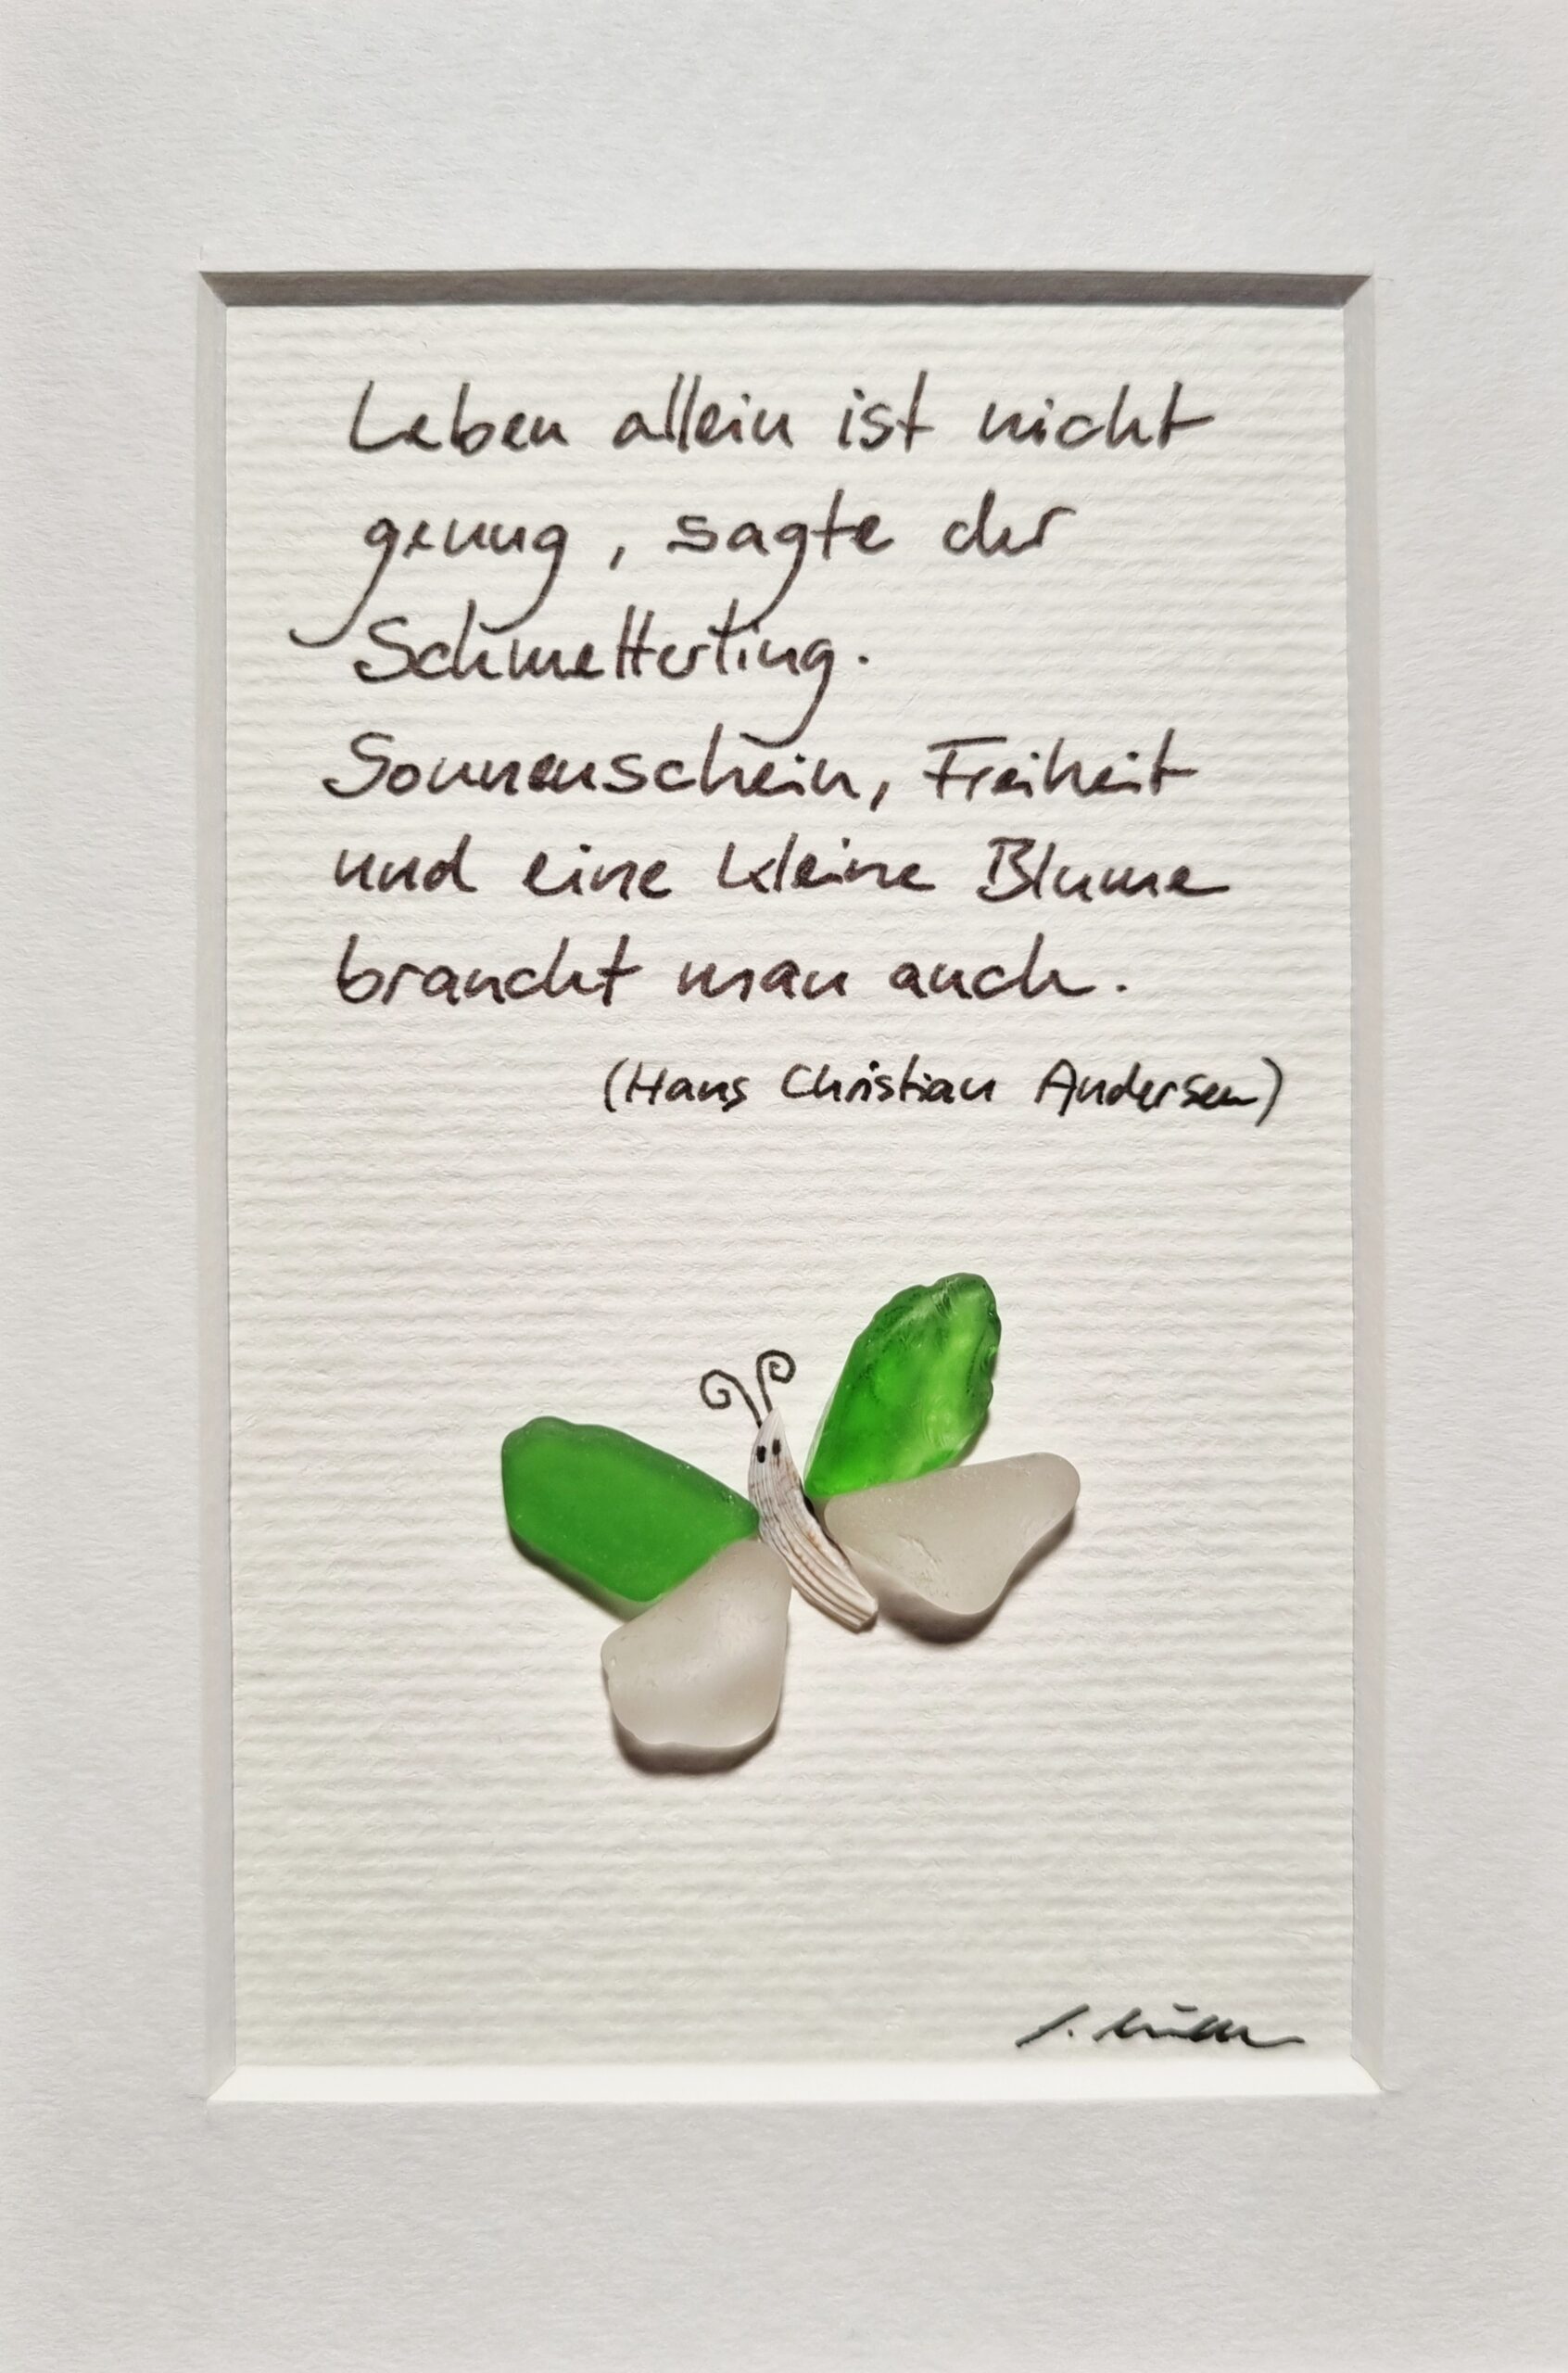 Leben allein ist nicht
genug, sagte der
Schmetterling.
Sonnenschein, Freiheit
und eine kleine Blume
braucht man auch.
(Hans Christian Andersen)